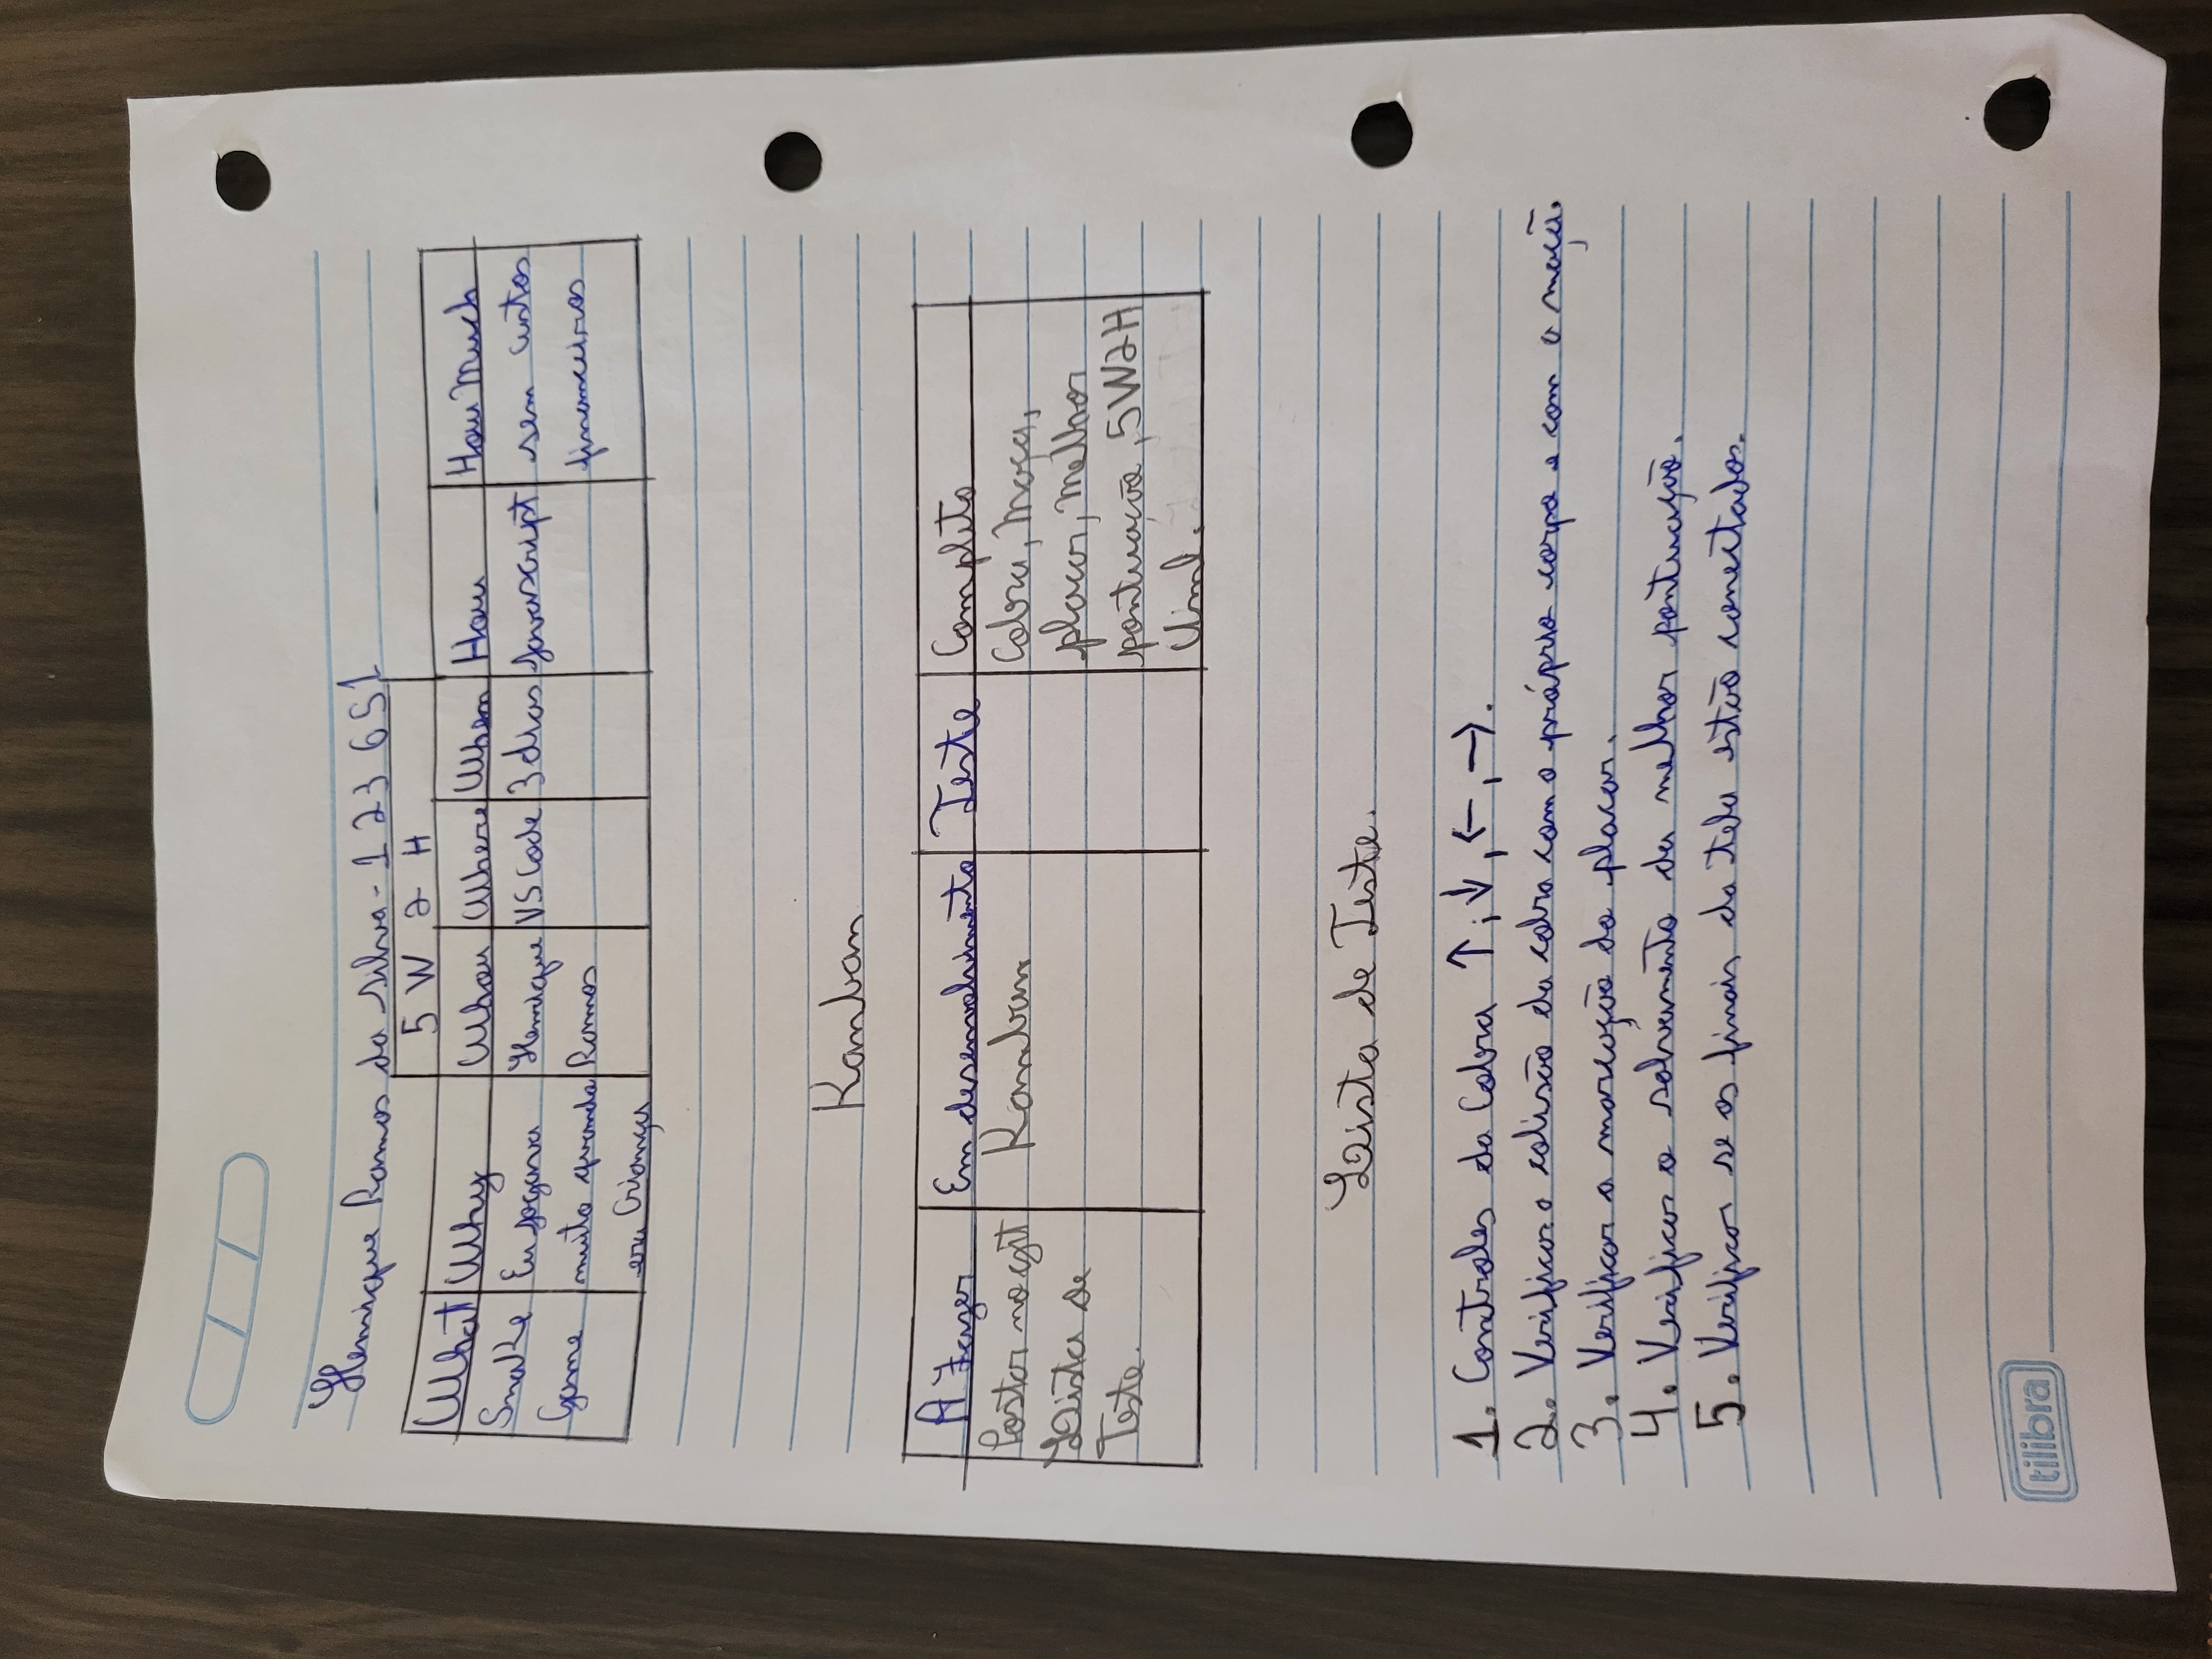 Henrique Ramos da Silva - 123651
5 W 2 H
What Why Whou Where When How How Much
Snake Eu jogava Henrique VS Code 3 dias Javascript sem custos
Game muito quando Ramos financeiros
era Criança
Kanban
A Fazer Em desenvolvimento Teste Completo
Postar no git Kanban Cobra, Maça,
Lista de placar, Melhor
Teste. pontuação, 5W2H
Uml.
Lista de Teste.
1. Controles da Cobra ↑; ↓, ←, →.
2. Verificar a colisão da cobra com o próprio corpo e com a maçã.
3. Verificar a marcação do placar.
4. Verificar o salvamento da melhor pontuação.
5. Verificar se os finais da tela estão conectados.
tilibra